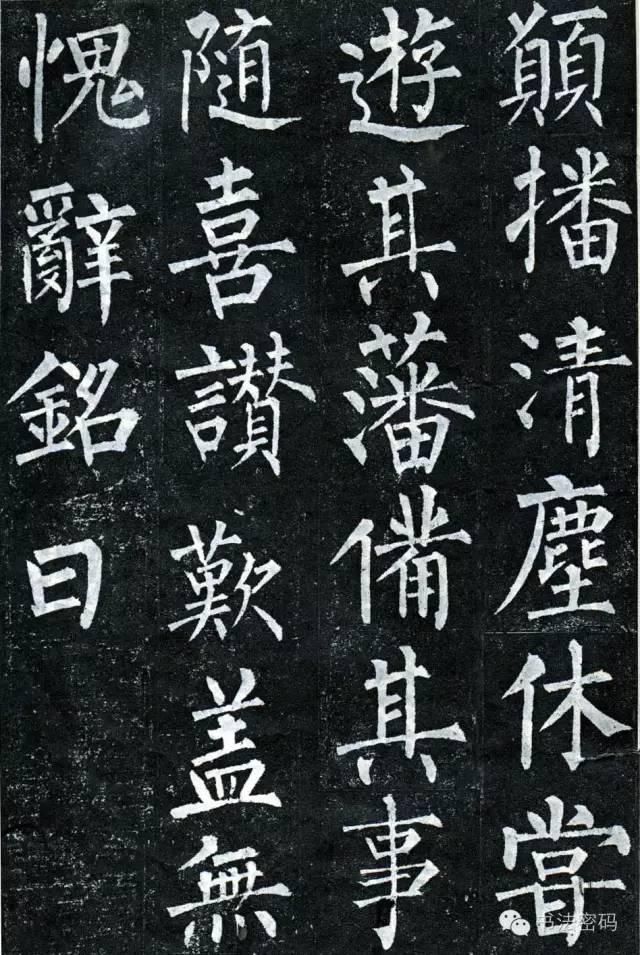 顚播清塵休甞
遊其藩備其事
隨喜讃歎盖無
愧辭銘曰
书法密码